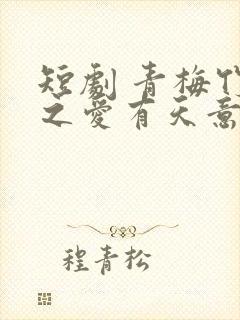 短劇青梅竹
之愛有天意
程青松